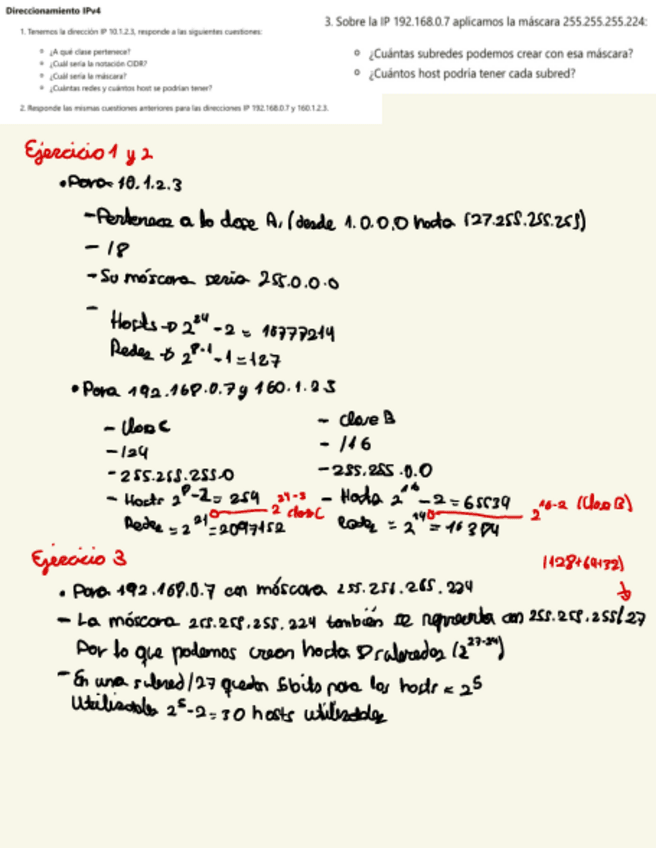 Direccionamiento IPv4
1. Tenemos la dirección IP 10.1.2.3, responde a las siguientes cuestiones:
¿A qué clase pertenece?
¿Cuál sería la notación CIDR?
¿Cuál sería la máscara?
¿Cuántas redes y cuántos host se podrían tener?
2. Responde las mismas cuestiones anteriores para las direcciones IP 192.168.0.7 y 160.1.2.3.
3. Sobre la IP 192.168.0.7 aplicamos la máscara 255.255.255.224:
¿Cuántas subredes podemos crear con esa máscara?
¿Cuántos host podría tener cada subred?
Ejercicio 1 y 2
• Para 10.1.2.3
- Pertenece a la clase A, (desde 1.0.0.0 hasta 127.255.255.255)
- /8
- Su máscara seria 255.0.0.0
-
Hosts → 2^24 - 2 = 16777214
Redes → 2^8-1 - 1 = 127
• Para 192.168.0.7 y 160.1.2.3
- Clase C
- /24
- 255.255.255.0
- Hosts 2^8 - 2 = 254
Redes = 2^21 = 2097152
2^24-3 clase C
- Clase B
- /16
- 255.255.0.0
- Hosts 2^16 - 2 = 65534
Redes = 2^14 = 16384
2^16-2 (Clase B)
Ejercicio 3
(128+64+32)
• Para 192.168.0.7 con máscara 255.255.255.224
- La máscara 255.255.255.224 también se representa con 255.255.255/27
Por lo que podemos crear hasta 8 subredes (2^27-24)
- En una subred /27 quedan 5 bits para los hosts = 2^5
Utilizables 2^5 - 2 = 30 hosts utilizables